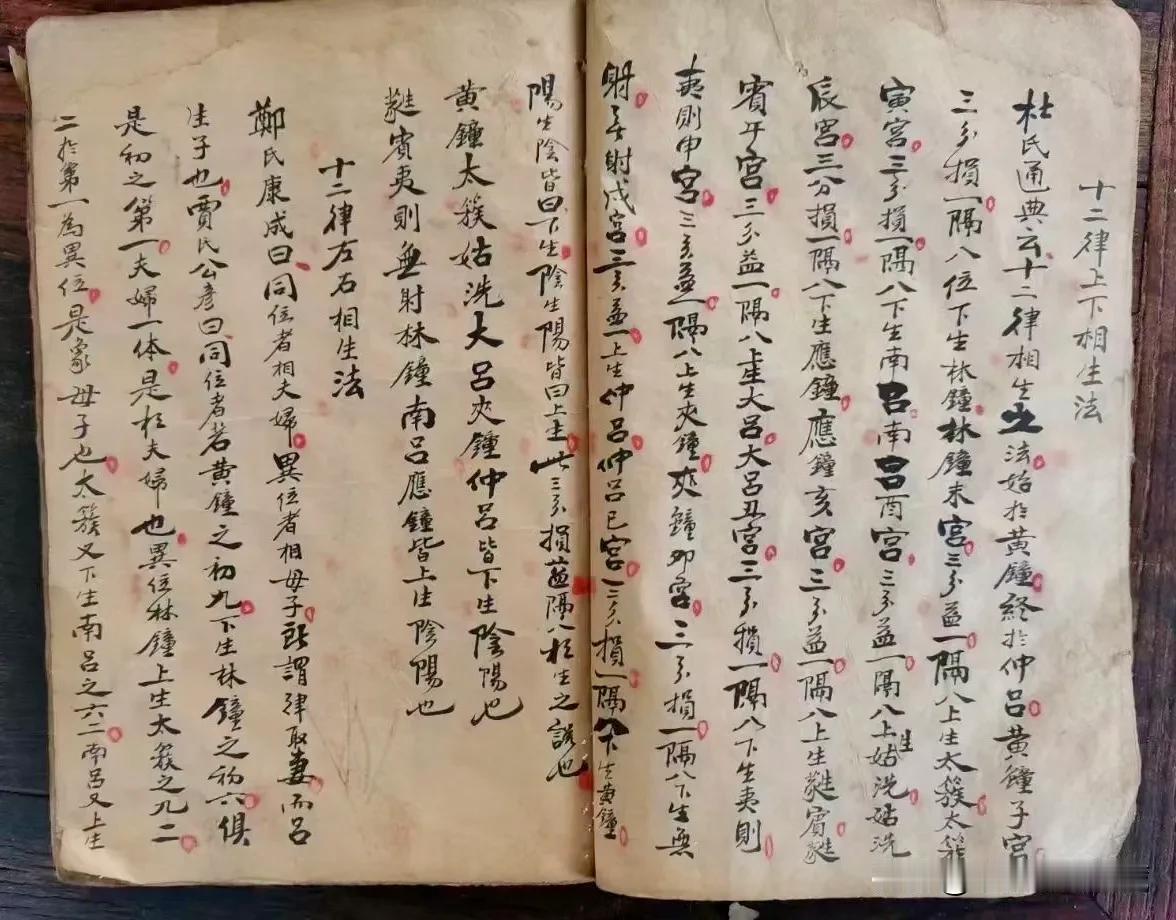 十二律上下相生法
杜氏通典云十二律相生之法始於黄鐘終於仲吕黄鐘子宫
三分損一隔八位下生林鐘林鐘未宫三分益一隔八上生太簇太簇
寅宫三分損一隔八下生南吕南吕酉宫三分益一隔八上生姑洗姑洗
辰宫三分損一隔八下生應鐘應鐘亥宫三分益一隔八上生蕤賓蕤
賓午宫三分益一隔八上生大吕大吕丑宫三分損一隔八下生夷則
夷則申宫三分益一隔八上生夾鐘夾鐘卯宫三分損一隔八下生無
射無射戌宫三分益一上生仲吕仲吕巳宫三分損一隔八下生黄鐘
陽生陰皆曰下生陰生陽皆曰上生此三分損益隔八相生之說也
黄鐘太簇姑洗大吕夾鐘仲吕皆下生陰陽也
蕤賓夷則無射林鐘南吕應鐘皆上生陰陽也
十二律左右相生法
鄭氏康成曰同位者相夫婦異位者相母子所謂律取妻而吕
生子也賈氏公彦曰同位者若黄鐘之初九下生林鐘之初六俱
是初之第一夫婦一体是相夫婦也異位林鐘上生太簇之九二
二於第一為異位是象母子也太簇又下生南吕之六二南吕又上生